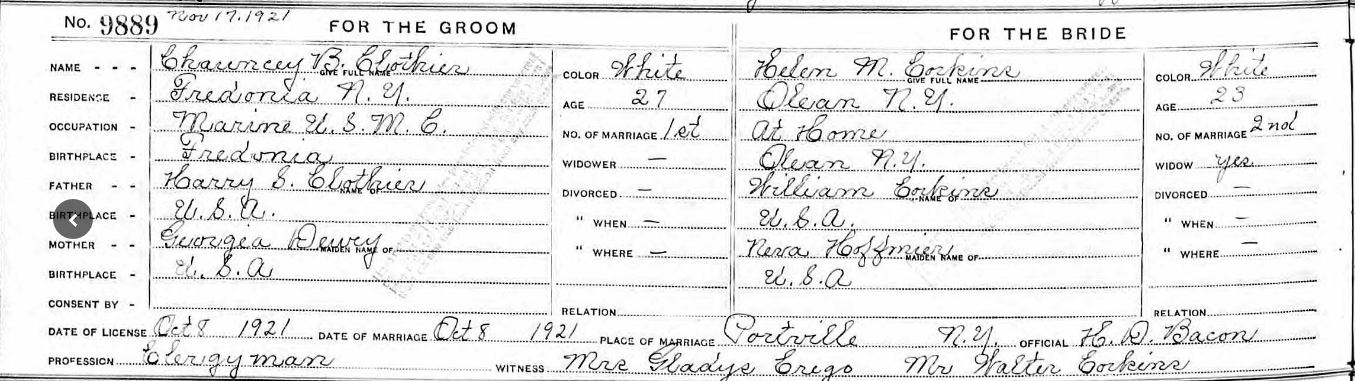 No. 9889 Nov 17. 1921 FOR THE GROOM FOR THE BRIDE
NAME - - - Chauncey B. Clothier GIVE FULL NAME COLOR White Helen M. Corkins GIVE FULL NAME COLOR White
RESIDENCE - Fredonia N.Y. AGE 27 Olean N.Y. AGE 23
OCCUPATION - Marine U.S.M.C. NO. OF MARRIAGE 1st At Home NO. OF MARRIAGE 2nd
BIRTHPLACE - Fredonia WIDOWER — Olean N.Y. WIDOW yes
FATHER - - Harry S. Clothier NAME OF DIVORCED — William Corkins NAME OF DIVORCED —
BIRTHPLACE - U.S.A. " WHEN — U.S.A. " WHEN —
MOTHER - - Georgia Dewry MAIDEN NAME OF " WHERE — Neva Hoffmier MAIDEN NAME OF " WHERE —
BIRTHPLACE - U.S.A U.S.A
CONSENT BY - RELATION RELATION
DATE OF LICENSE Oct 8 1921 DATE OF MARRIAGE Oct 8 1921 PLACE OF MARRIAGE Portville N.Y. OFFICIAL H. D. Bacon
PROFESSION Clergyman WITNESS Mrs Gladys Crego Mr Walter Corkins